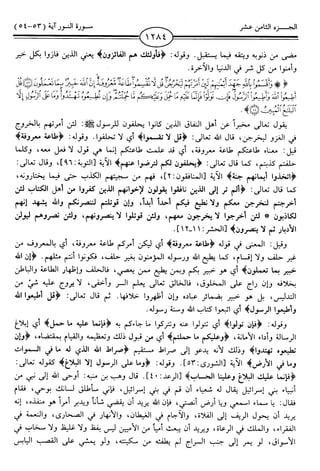 الجـزء الثامن عشر
١٢٨٤
سورة النور آية (٥٣-٥٤)
مضى من ذنوبه ويتقه فيما يستقبل. وقوله: ﴿فأولئك هم الفائزون﴾ يعني الذين فازوا بكل خير
وأمنوا من كل شر في الدنيا والآخرة.
يقول تعالى مخبراً عن أهل النفاق الذين كانوا يحلفون للرسول ﷺ: لئن أمرتهم بالخروج
في الغزو ليخرجن، قال الله تعالى: ﴿قل لا تقسموا﴾ أي لا تحلفوا. وقوله: ﴿طاعة معروفة﴾
قيل: معناه طاعتكم طاعة معروفة، أي قد علمت طاعتكم إنما هي قول لا فعل معه، وكلما
حلفتم كذبتم، كما قال تعالى: ﴿يحلفون لكم لترضوا عنهم﴾ الآية [التوبة: ٩٦]، وقال تعالى:
﴿اتخذوا أيمانهم جنة﴾ الآية [المنافقون: ٢]، فهم من سجيتهم الكذب حتى فيما يختارونه،
كما قال تعالى: ﴿ألم تر إلى الذين نافقوا يقولون لإخوانهم الذين كفروا من أهل الكتاب لئن
أخرجتم لنخرجن معكم ولا نطيع فيكم أحداً أبداً، وإن قوتلتم لننصرنكم والله يشهد إنهم
لكاذبون * لئن أخرجوا لا يخرجون معهم، ولئن قوتلوا لا ينصرونهم، ولئن نصروهم ليولن
الأدبار ثم لا ينصرون﴾ [الحشر: ١١-١٢].
وقيل: المعنى في قوله ﴿طاعة معروفة﴾ أي ليكن أمركم طاعة معروفة، أي بالمعروف من
غير حلف ولا إقسام، كما يطيع الله ورسوله المؤمنون بغير حلف، فكونوا أنتم مثلهم. ﴿إن الله
خبير بما تعملون﴾ أي هو خبير بكم وبمن يطيع ممن يعصي، فالحلف وإظهار الطاعة والباطن
بخلافه وإن راج على المخلوق، فالخالق تعالى يعلم السر وأخفى، لا يروج عليه شيء من
التدليس، بل هو خبير بضمائر عباده وإن أظهروا خلافها. ثم قال تعالى: ﴿قل أطيعوا الله
وأطيعوا الرسول﴾ أي اتبعوا كتاب الله وسنة رسوله.
وقوله: ﴿فإن تولوا﴾ أي تتولوا عنه وتتركوا ما جاءكم به ﴿فإنما عليه ما حمل﴾ أي إبلاغ
الرسالة وأداء الأمانة، ﴿وعليكم ما حملتم﴾ أي من قبول ذلك وتعظيمه والقيام بمقتضاه، ﴿وإن
تطيعوه تهتدوا﴾ وذلك لأنه يدعو إلى صراط مستقيم ﴿صراط الله الذي له ما في السموات
وما في الأرض﴾ الآية [الشورى: ٥٣]. وقوله: ﴿وما على الرسول إلا البلاغ﴾ كقوله تعالى:
﴿فإنما عليك البلاغ وعلينا الحساب﴾ [الرعد: ٤٠]. قال وهب بن منبه: أوحى الله إلى نبي من
أنبياء بني إسرائيل يقال له شعياء أن قم في بني إسرائيل، فإني سأطلق لسانك بوحي، فقام
فقال: يا سماء اسمعي ويا أرض أنصتي، فإن الله يريد أن يقضي شأناً ويدبر أمراً هو منفذه، إنه
يريد أن يحول الريف إلى الفلاة، والآجام في الغيطان، والأنهار في الصحاري، والنعمة في
الفقراء، والملك في الرعاة، ويريد أن يبعث أمياً من الأميين ليس بفظ ولا غليظ ولا سخاب في
الأسواق، لو يمر إلى جنب السراج لم يطفئه من سكينته، ولو يمشي على القصب اليابس